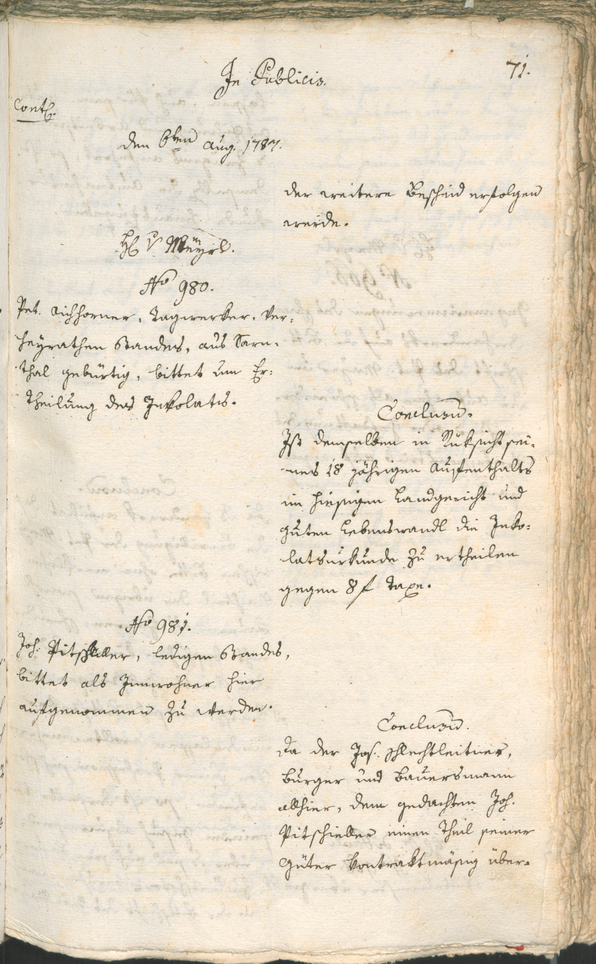 In Publicis.
71.
Cont.
den 6ten Aug. 1787.
der weitere Bescheid erfolgen
werde.
H. v. Mayrl.
No 980.
Pet. Aichhorner, Tagwerker, ver-
heyrathen Standes, aus Sarn-
thal gebürtig, bittet um Er-
theilung des Inkolats.
Conclusum.
Ist demselben in Rüksicht sei-
nes 18 jährigen Aufenthalts
im hiesigen Landgericht und
guten Lebenswandl die Inko-
latsurkunde zu ertheilen
gegen 8 f Taxe.
No 981.
Joh. Pitschieller, ledigen Standes,
bittet als Innwohner hier
aufgenommen zu werden.
Conclusum.
Da der Jos. Schlechtleitner,
Burger und Bauersmann
allhier, dem gedachten Joh.
Pitschieller einen Theil seiner
Güter kontraktmäßig über-